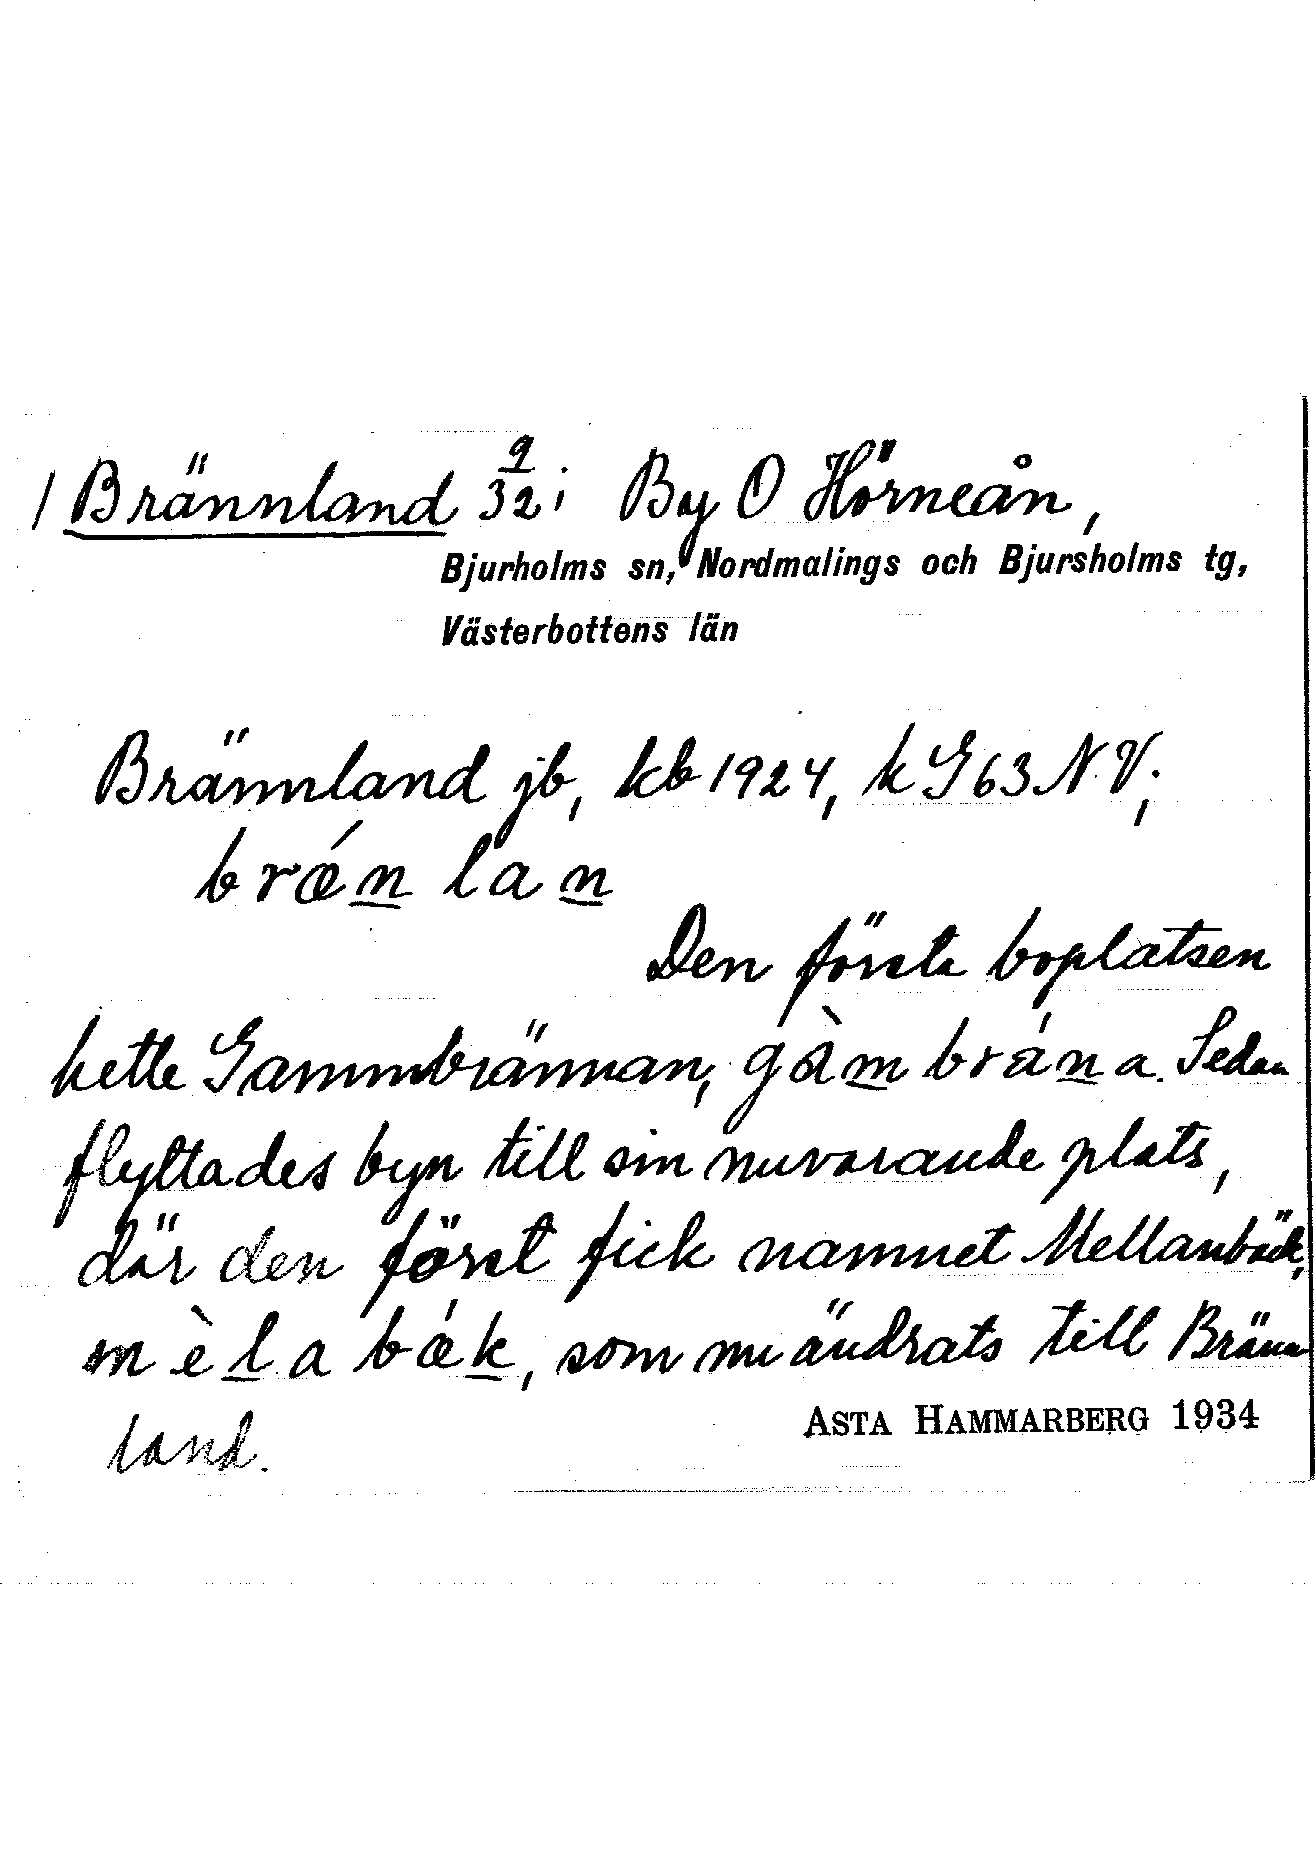 / Brännland 9/32; By O Hörneån,
Bjurholms sn, Nordmalings och Bjursholms tg,
Västerbottens län
Brännland jb, kb 1924, k G 63 N.V.;
bræ´n̲ lan̲
Den första boplatsen
hette Gammbrännan, gàm̲ brán̲a. Sedan
flyttades byn till sin nuvarande plats,
där den först fick namnet Mellanbäck,
mèl̲a bǽk̲, som nu ändrats till Bränn
land.
ASTA HAMMARBERG 1934